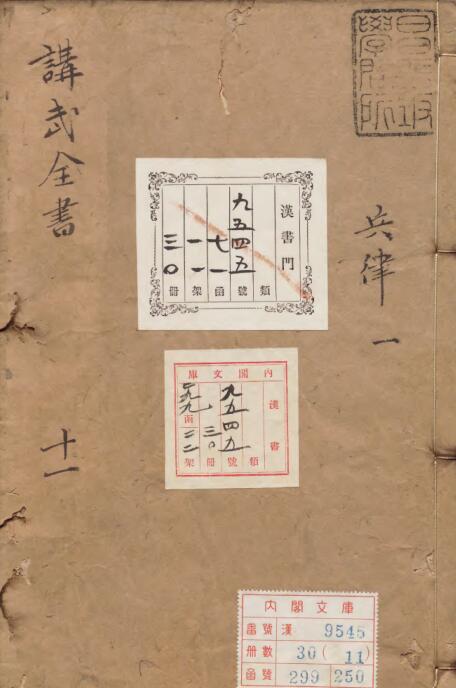 昌平坂
學問所
講武全書
十一
兵律 一
漢書門
類
九五四五號
七一函
一一架
三〇冊
內閣文庫
漢書
類
九五四五號
三〇冊
函
架
内閣文庫
番號 漢 9545
冊數 30 ( 11 )
函號 299 250